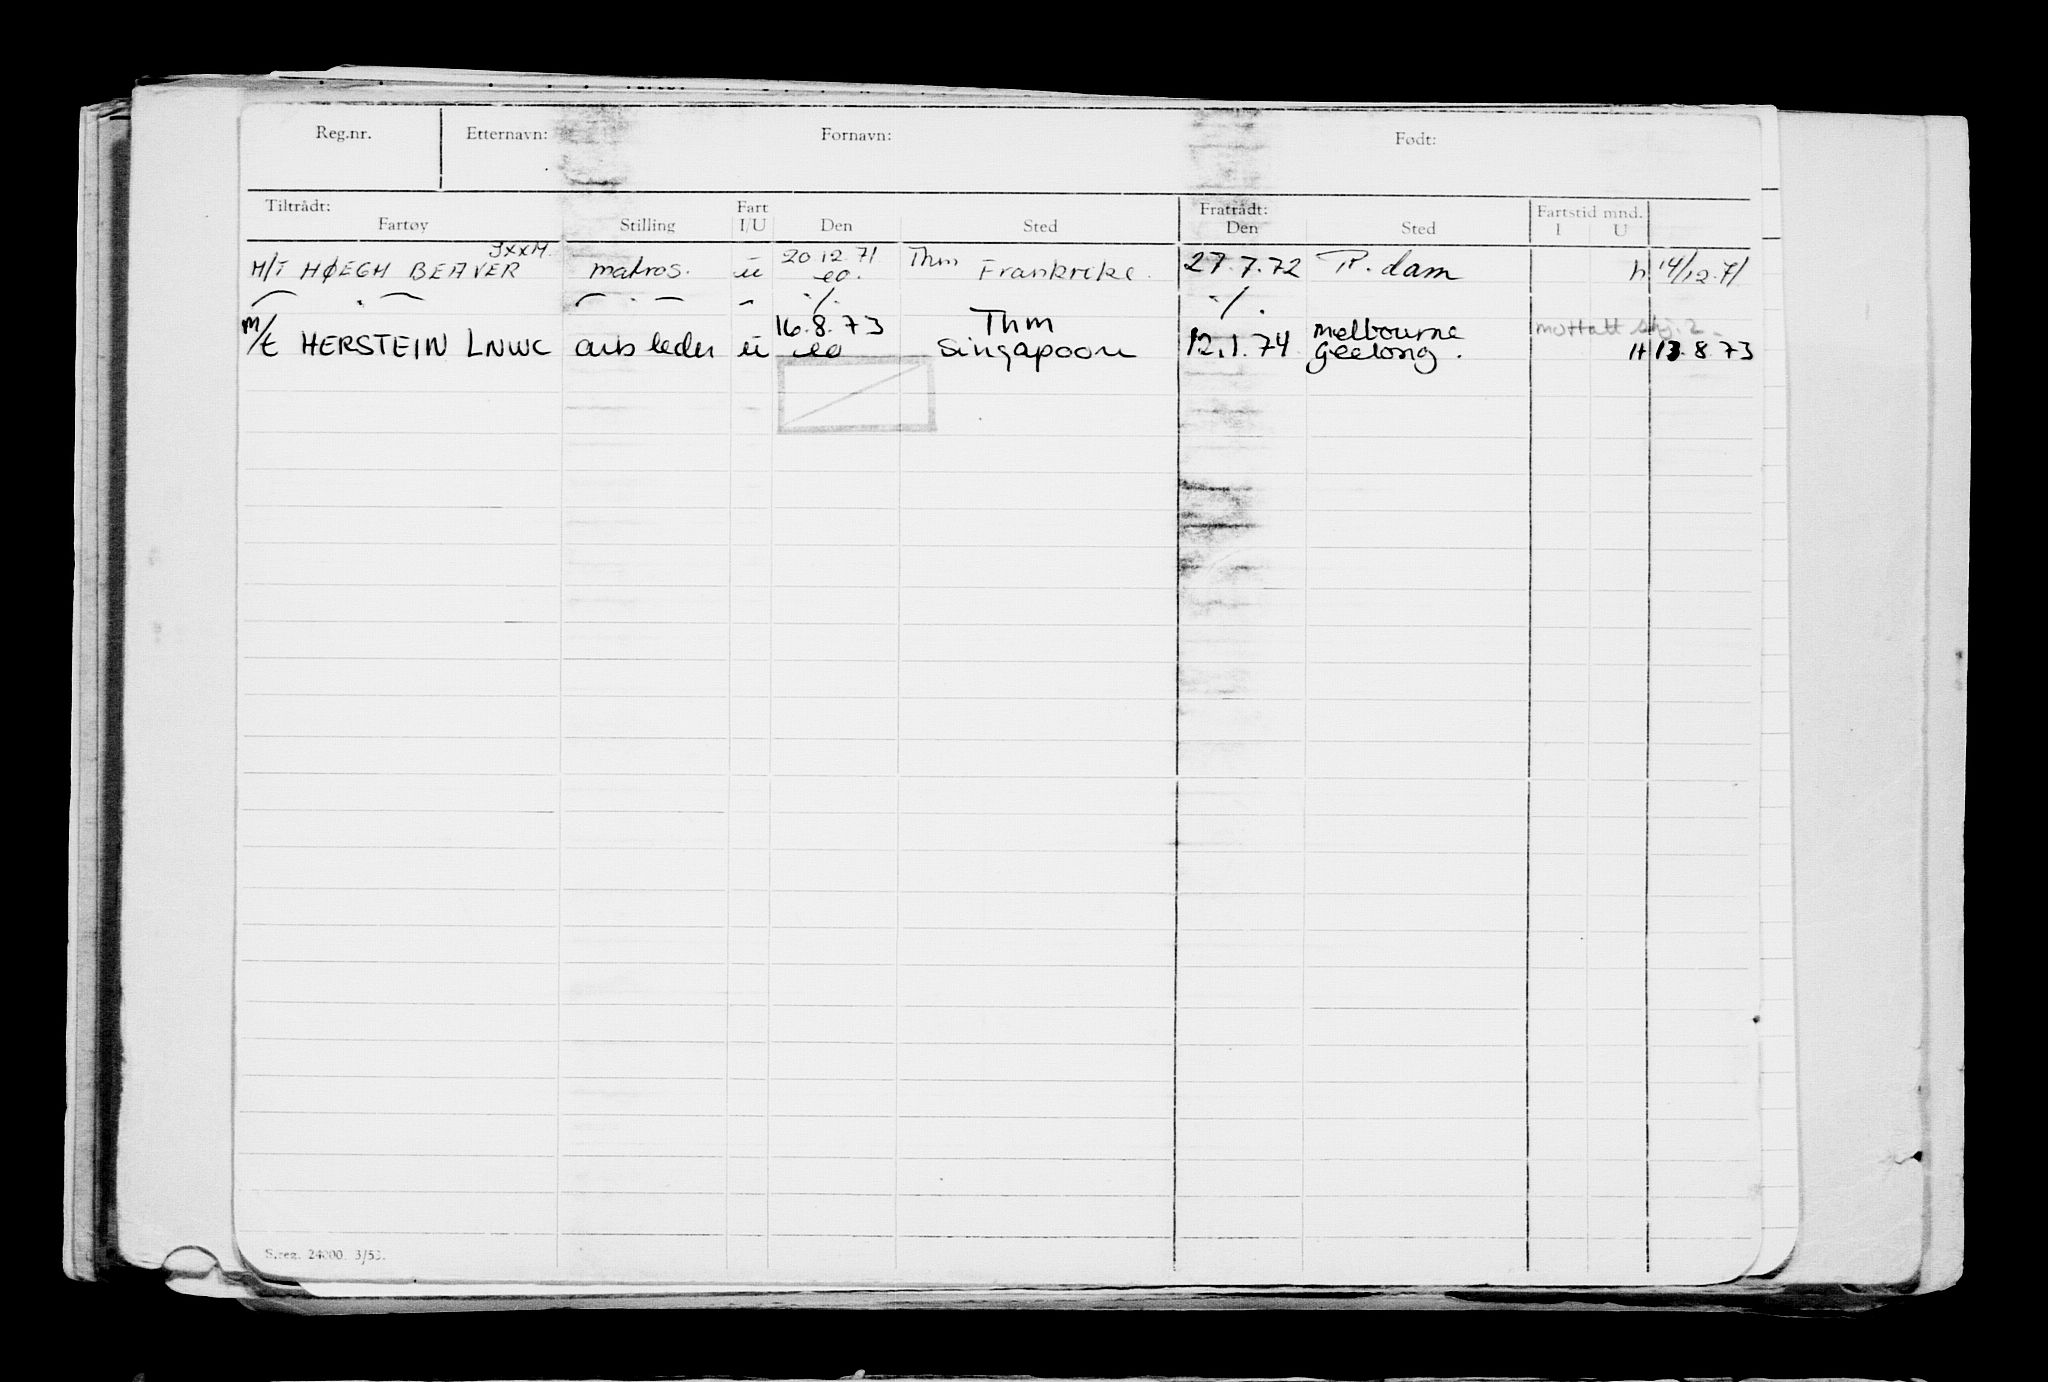 Reg.nr. Etternavn: Fornavn: Født:
Tiltrådt: Fart Fratrådt: Fartstid mnd.
Fartøy Stilling I/U Den Sted Den Sted I U
JXXM. 20.12.71 Thm
M/T HØEGH BEAVER matros. u eo. Frankrike. 27.7.72 R.dam h 14/12.71
./. ./.
16.8.73 Thm Melbourne mottatt skj. 2.
M/t HERSTEIN LNWC arb leder u eo Singapoore 12.1.74 Geelong. H 13.8.73
S.reg. 24000. 3/53.